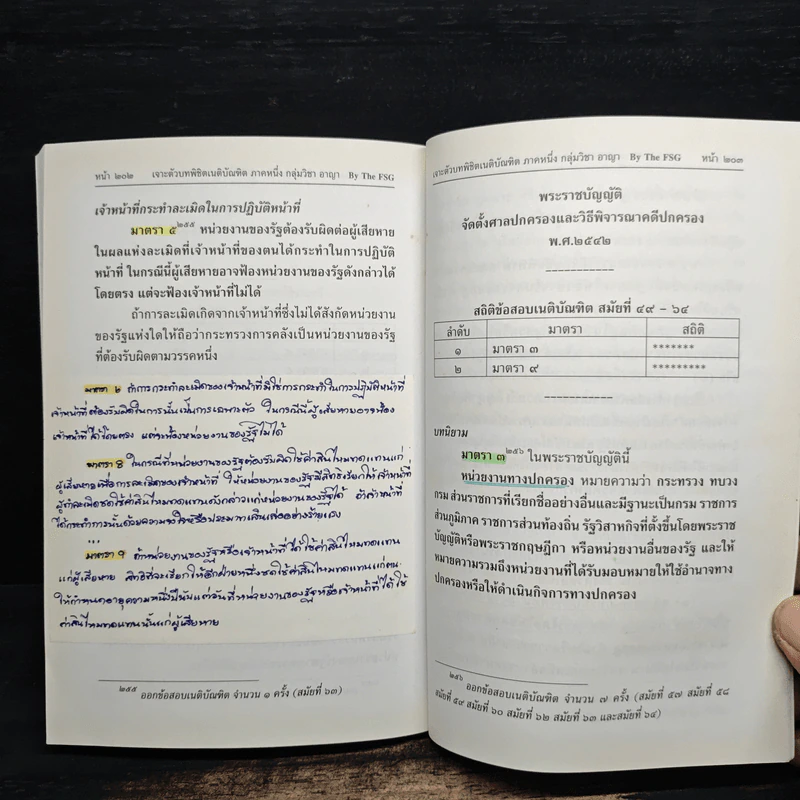 หน้า ๒๐๒ เจาะตัวบทพิชิตเนติบัณฑิต ภาคหนึ่ง กลุ่มวิชา อาญา By The FSG
เจ้าหน้าที่กระทำละเมิดในการปฏิบัติหน้าที่
มาตรา ๕๒๕๕ หน่วยงานของรัฐต้องรับผิดต่อผู้เสียหาย
ในผลแห่งละเมิดที่เจ้าหน้าที่ของตนได้กระทำในการปฏิบัติ
หน้าที่ ในกรณีนี้ผู้เสียหายอาจฟ้องหน่วยงานของรัฐดังกล่าวได้
โดยตรง แต่จะฟ้องเจ้าหน้าที่ไม่ได้
ถ้าการละเมิดเกิดจากเจ้าหน้าที่ซึ่งไม่ได้สังกัดหน่วยงาน
ของรัฐแห่งใดให้ถือว่ากระทรวงการคลังเป็นหน่วยงานของรัฐ
ที่ต้องรับผิดตามวรรคหนึ่ง
มาตรา ๖ ถ้าการกระทำละเมิดของเจ้าหน้าที่มิใช่การกระทำในการปฏิบัติหน้าที่
เจ้าหน้าที่ต้องรับผิดในการนั้นเป็นการเฉพาะตัว ในกรณีนี้ผู้เสียหายอาจฟ้อง
เจ้าหน้าที่ได้โดยตรง แต่จะฟ้องหน่วยงานของรัฐไม่ได้
มาตรา 8 ในกรณีที่หน่วยงานของรัฐต้องรับผิดใช้ค่าสินไหมทดแทนแก่
ผู้เสียหายเพื่อการละเมิดของเจ้าหน้าที่ ให้หน่วยงานของรัฐมีสิทธิเรียกให้เจ้าหน้าที่
ผู้ทำละเมิดชดใช้ค่าสินไหมทดแทนดังกล่าวแก่หน่วยงานของรัฐได้ ถ้าเจ้าหน้าที่
ได้กระทำการนั้นด้วยความจงใจหรือประมาทเลินเล่ออย่างร้ายแรง
...
มาตรา 9 ถ้าหน่วยงานของรัฐหรือเจ้าหน้าที่ได้ใช้ค่าสินไหมทดแทน
แก่ผู้เสียหาย สิทธิที่จะเรียกให้อีกฝ่ายหนึ่งชดใช้ค่าสินไหมทดแทนแก่ตน
ให้กำหนดอายุความหนึ่งปีนับแต่วันที่หน่วยงานของรัฐหรือเจ้าหน้าที่ได้ใช้
ค่าสินไหมทดแทนนั้นแก่ผู้เสียหาย
๒๕๕ ออกข้อสอบเนติบัณฑิต จำนวน ๑ ครั้ง (สมัยที่ ๖๓)
เจาะตัวบทพิชิตเนติบัณฑิต ภาคหนึ่ง กลุ่มวิชา อาญา By The FSG หน้า ๒๐๓
พระราชบัญญัติ
จัดตั้งศาลปกครองและวิธีพิจารณาคดีปกครอง
พ.ศ.๒๕๔๒
------------
สถิติข้อสอบเนติบัณฑิต สมัยที่ ๔๙ - ๖๔
ลำดับ มาตรา สถิติ
๑ มาตรา ๓ *******
๒ มาตรา ๙ *********
------------
บทนิยาม
มาตรา ๓๒๕๖ ในพระราชบัญญัตินี้
หน่วยงานทางปกครอง หมายความว่า กระทรวง ทบวง
กรม ส่วนราชการที่เรียกชื่ออย่างอื่นและมีฐานะเป็นกรม ราชการ
ส่วนภูมิภาค ราชการส่วนท้องถิ่น รัฐวิสาหกิจที่ตั้งขึ้นโดยพระราช
บัญญัติหรือพระราชกฤษฎีกา หรือหน่วยงานอื่นของรัฐ และให้
หมายความรวมถึงหน่วยงานที่ได้รับมอบหมายให้ใช้อำนาจทาง
ปกครองหรือให้ดำเนินกิจการทางปกครอง
๒๕๖ ออกข้อสอบเนติบัณฑิต จำนวน ๗ ครั้ง (สมัยที่ ๕๗ สมัยที่ ๕๘
สมัยที่ ๕๙ สมัยที่ ๖๐ สมัยที่ ๖๒ สมัยที่ ๖๓ และสมัยที่ ๖๔)